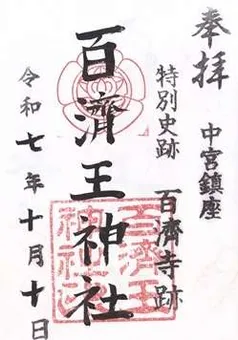 奉拝
中宮鎮座
特別史跡
百濟寺跡
百濟王神社
百濟王
神社印
令和七年十月十日